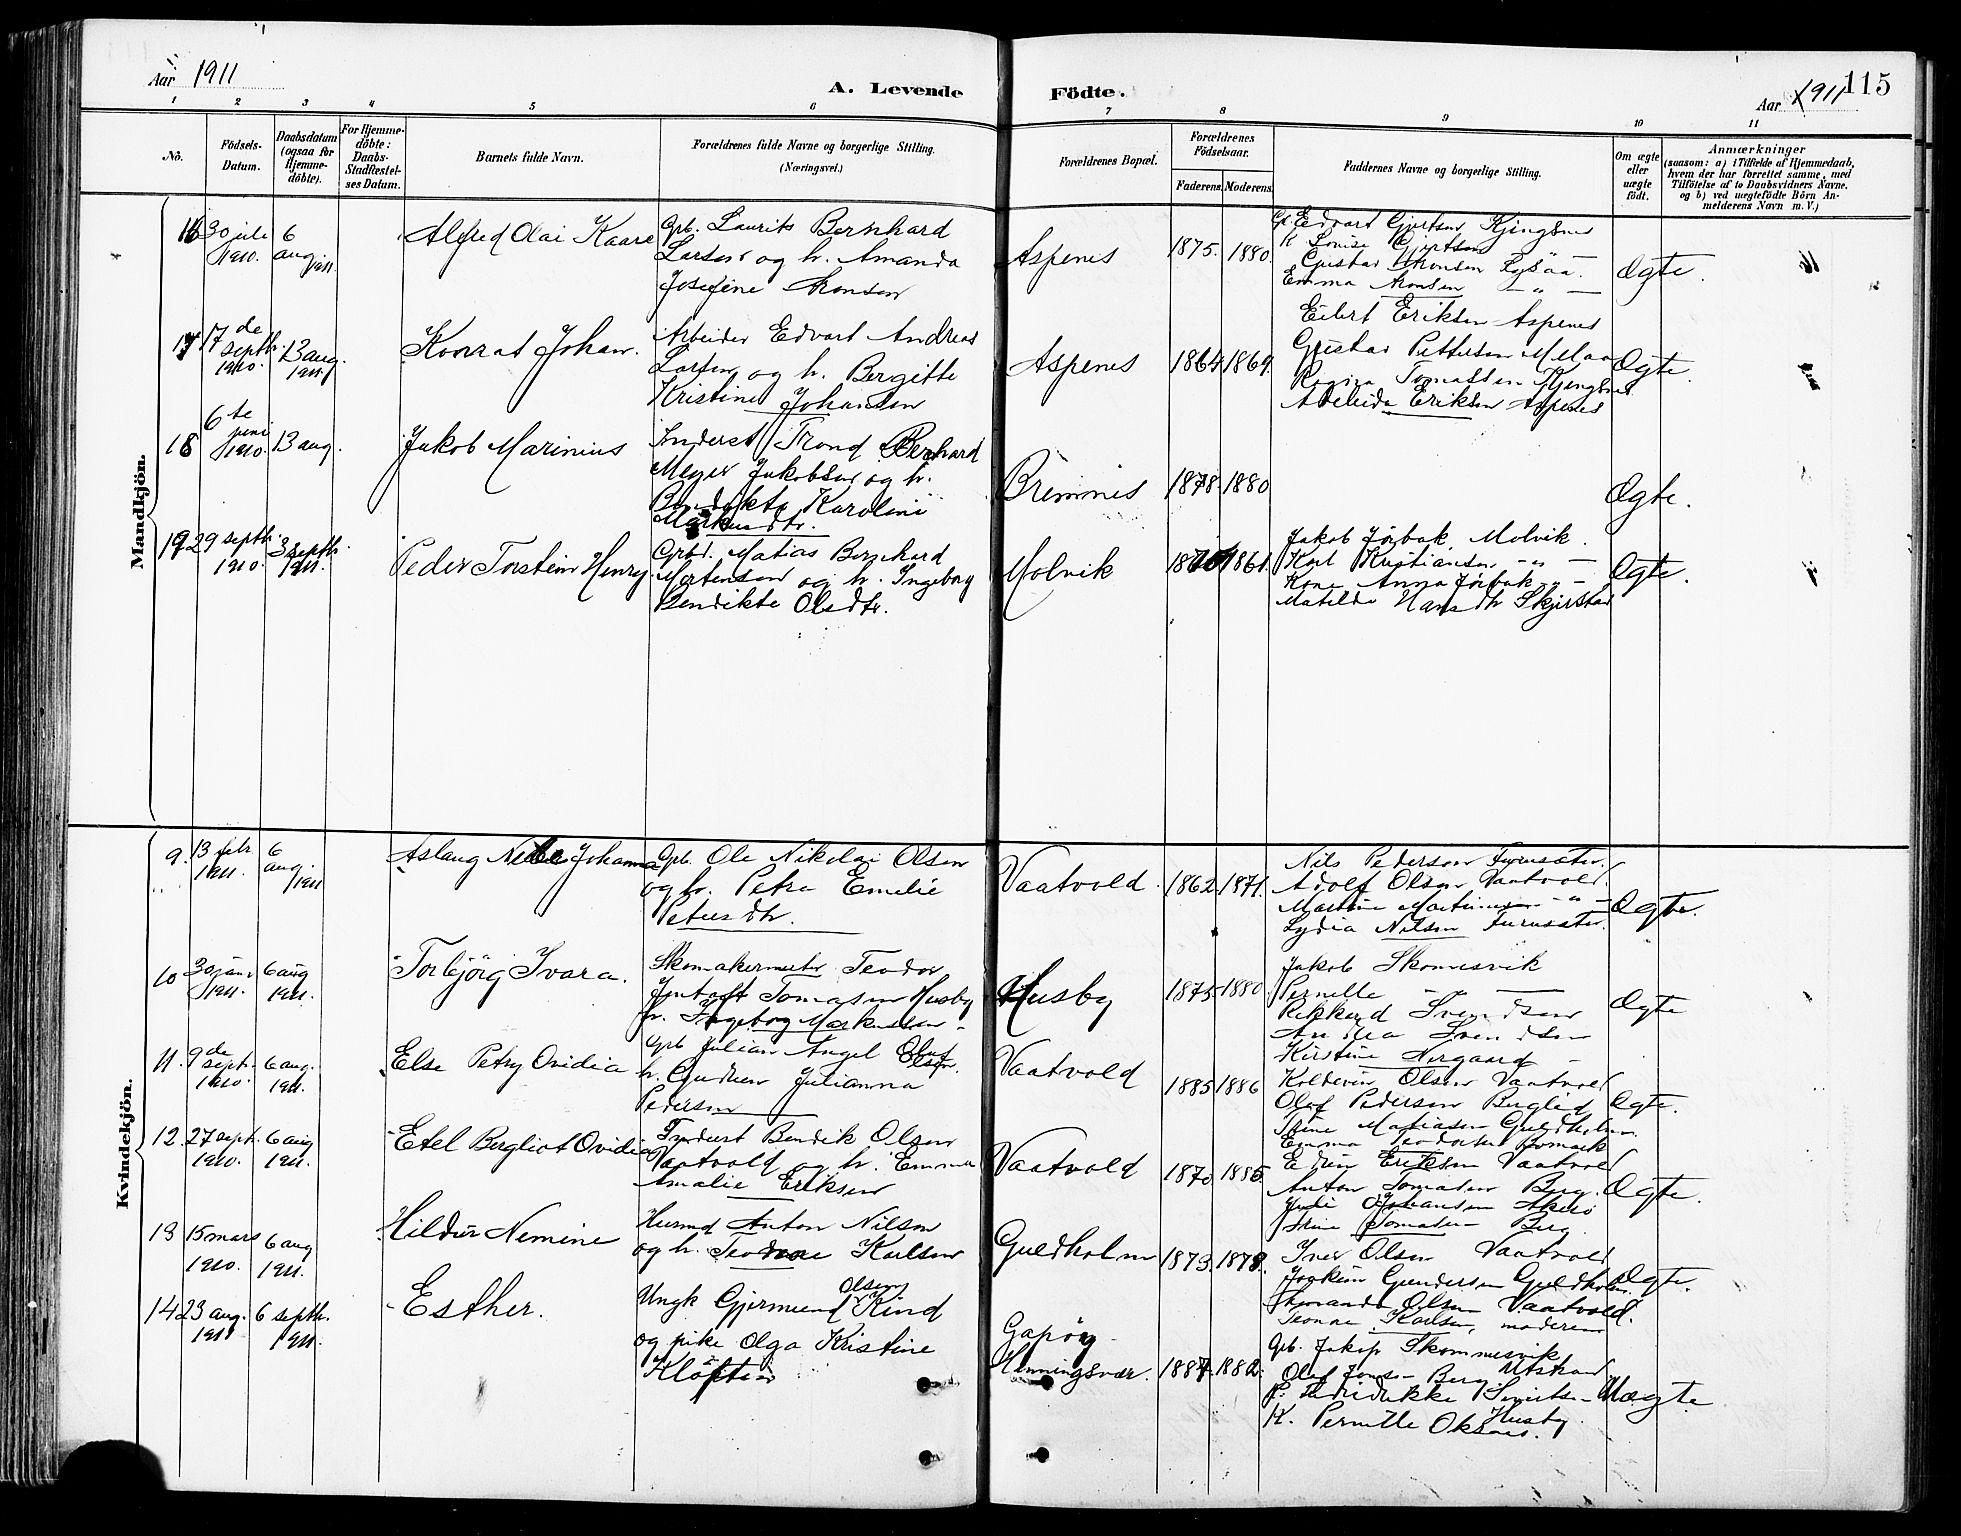 Aar 1911
A. Levende
Födte.
Aar 1911
115
1 2 3 4 5 6 7 8 9 10 11
No.
Födsels-
Datum.
Daabsdatum
(ogsaa for
Hjemme-
döbte).
For Hjemme-
döbte:
Daabs-
Stadfæstel-
ses Datum.
Barnets fulde Navn.
Forældrenes fulde Navne og borgerlige Stilling.
(Næringsvei.)
Forældrenes Bopæl.
Forældrenes
Födselsaar.
Faderens. Moderens.
Faddernes Navne og borgerlige Stilling.
Om ægte
eller
uægte
födt.
Anmærkninger
(saasom: a) i Tilfælde af Hjemmedaab,
hvem der har forrettet samme, med
Tilföielse af to Daabsvidners Navne,
og b) ved uægtefödte Börn An-
melderens Navn m. V.)
Mandkjön.
16 30 juli
1910.
6
aug 1911.
Alfred Olai Kaare
Grb. Laurits Bernhard
Larsen og h. Amanda
Josefine Aronsen
Aspenes
1875. 1880.
Edvart Gjertsen Kjengsnes
K. Lovise Gjertsen
Gustav Aronsen
Emma Aronsen
Ægte.
17 17 de
septb.
1910.
13 aug.
1911.
Konrat Johan.
Arbeider Edvart Andreas
Larsen og h. Bergitte
Kristine Johansen
Aspenes
1864 1869.
Eilert Eriksen Aspenes
Gustav Pettersen Melaa
Regina Tomassen Kjengsnes
Adeleide Eriksen Aspenes
Ægte.
18 6 te
juni
1910.
13 aug.
Jakob Marinius
Inderst Trond Bernhard
Meyer Jakobsen og h.
Bendikte Karoline
Markusdtr.
Bremnes
1878. 1880
Ægte.
19 29 septb.
1910.
3 septb.
1911.
Peder Torstein Henry
Grbr. Matias Bernhard
Mortensen og h. Ingeborg
Bendikte Olsdtr.
Molvik
1861.
Jakob Jörbak, Molvik.
Karl Kristiansen - " -
Kone Anna Jörbak - " -
Matilde Hansdtr Skjerstad
Ægte.
Kvindekjön.
9. 13 febr.
1911.
6
aug
1911
Aslaug Johanna
Grb. Ole Nikolai Olsen
og h. Petra Emelie
Petersdtr.
Vaatvold.
1862. 1871.
Nils Pedersen Furusæter.
Adolf Olsen Vaatvold.
Martine - " -
Lydia Nilsen Furusæter.
Ægte.
10 30 jan.
1911.
6 aug
1911.
Torbjörg Ivara.
Skomakermester Teodor
Tomassen Husby
h. Ingeborg Markussen
Husby
1875. 1880.
Jakob Skomesvik
Pernelle
Rikkard Svendsen
Andrea Svendsen
Kirstine Norgaard
Ægte
11. 9 de
sept.
1910.
6 aug.
1911.
Else Petry Ovidia
Grb Julian Angel Oluf
Olsen.
h. Gudrun Julianna
Pedersen
Vaatvold
1885 1886
Koldevin Olsen Vaatvold
Olaf Pedersen Berglid
Trine Matiasen Guldholmen
Emma
Ægte.
12. 27 sept.
1910.
6 aug
1911.
Etel Bergliot Ovidia
Inderst Bendik Olsen
Vaatvold og h. Emma
Amalie Eriksen
Vaatvold
1870 1885.
Edvin Eriksen Vaatvold
Anton Tomasen Berg.
Julie Johansen
Trine Tomasen Berg
Ægte.
13 15 mars
1910.
6 aug
1911.
Hildur Nemine
Husmd Anton Nilsen
og h. Karlsen
Guldholm
1873. 1878.
Iver Olsen Vaatvold
Joakim Gundersen Guldholm.
Amanda Olsen Vaatvold.
Karlsen, moderen
Ægte.
14 23 aug.
1911
6 septb.
1911.
Esther.
Ungk Gjermund Olsen Kind
og pike Olga Kristine
Klöften
Gapöy
Henningsvær.
1887. 1882.
Grb. Jakop Skommesvik
Olaf Berg Utstrand
Husby
K. Pernille Oksnes.
Uægte